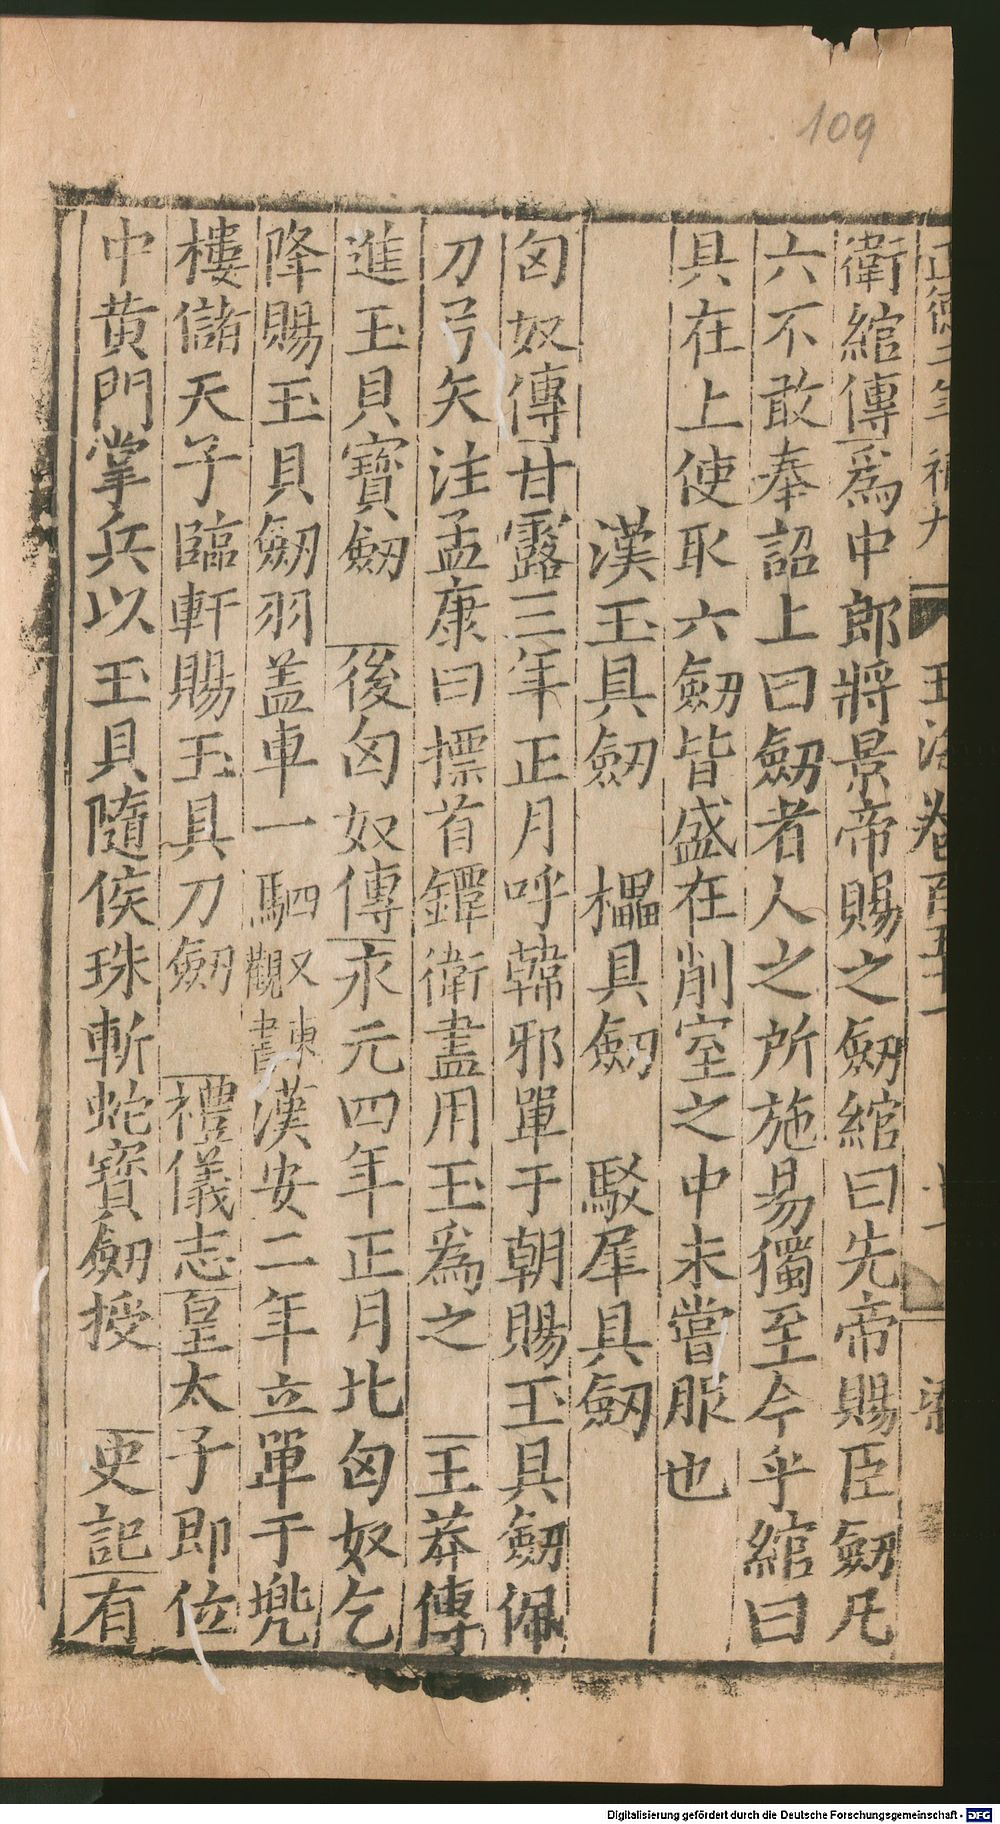 109
正德二年補九
玉海卷百五十一
衛綰傳爲中郎將景帝賜之劒綰曰先帝賜臣劒凡
六不敢奉詔上曰劒者人之所施易獨至今乎綰曰
具在上使取六劒皆盛在削室之中未嘗服也
漢玉具劒 櫑具劒 駮犀具劒
匈奴傳甘露三年正月呼韓邪單于朝賜玉具劒佩
刀弓矢注孟康曰摽首鐔衛盡用玉爲之 王莽傳
進玉具寶劒 後匈奴傳永元四年正月北匈奴乞
降賜玉具劒羽盖車一駟又東觀書漢安二年立單于兠
樓儲天子臨軒賜玉具刀劒 禮儀志皇太子即位
中黄門掌兵以玉具隨侯珠斬蛇寶劒授 史記有
Digitalisierung gefördert durch die Deutsche Forschungsgemeinschaft - DFG